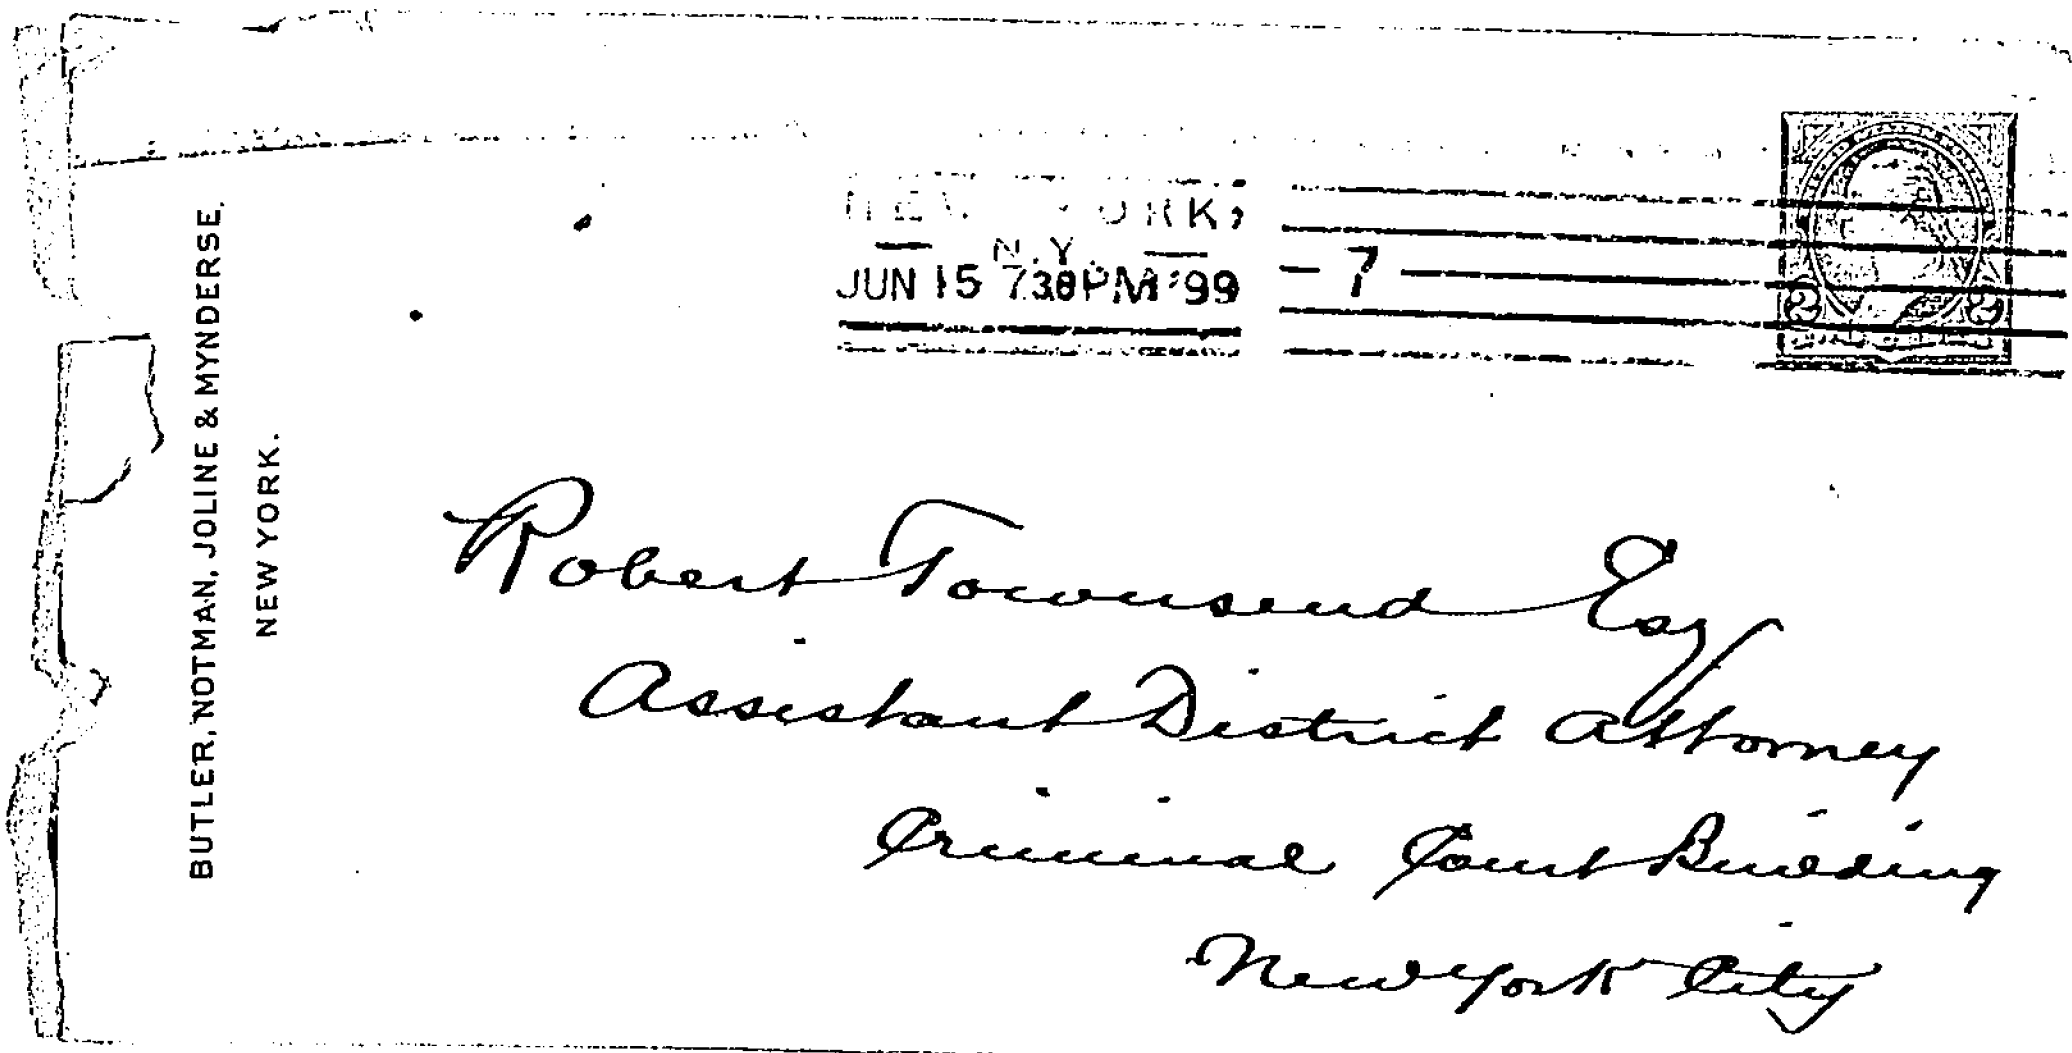 BUTLER, NOTMAN, JOLINE & MYNDERSE.
NEW YORK.
NEW YORK,
N.Y.
JUN 15 730PM '99
7
2 2
Robert Townsend Esq
Assistant District Attorney
Criminal Court Building
New York City